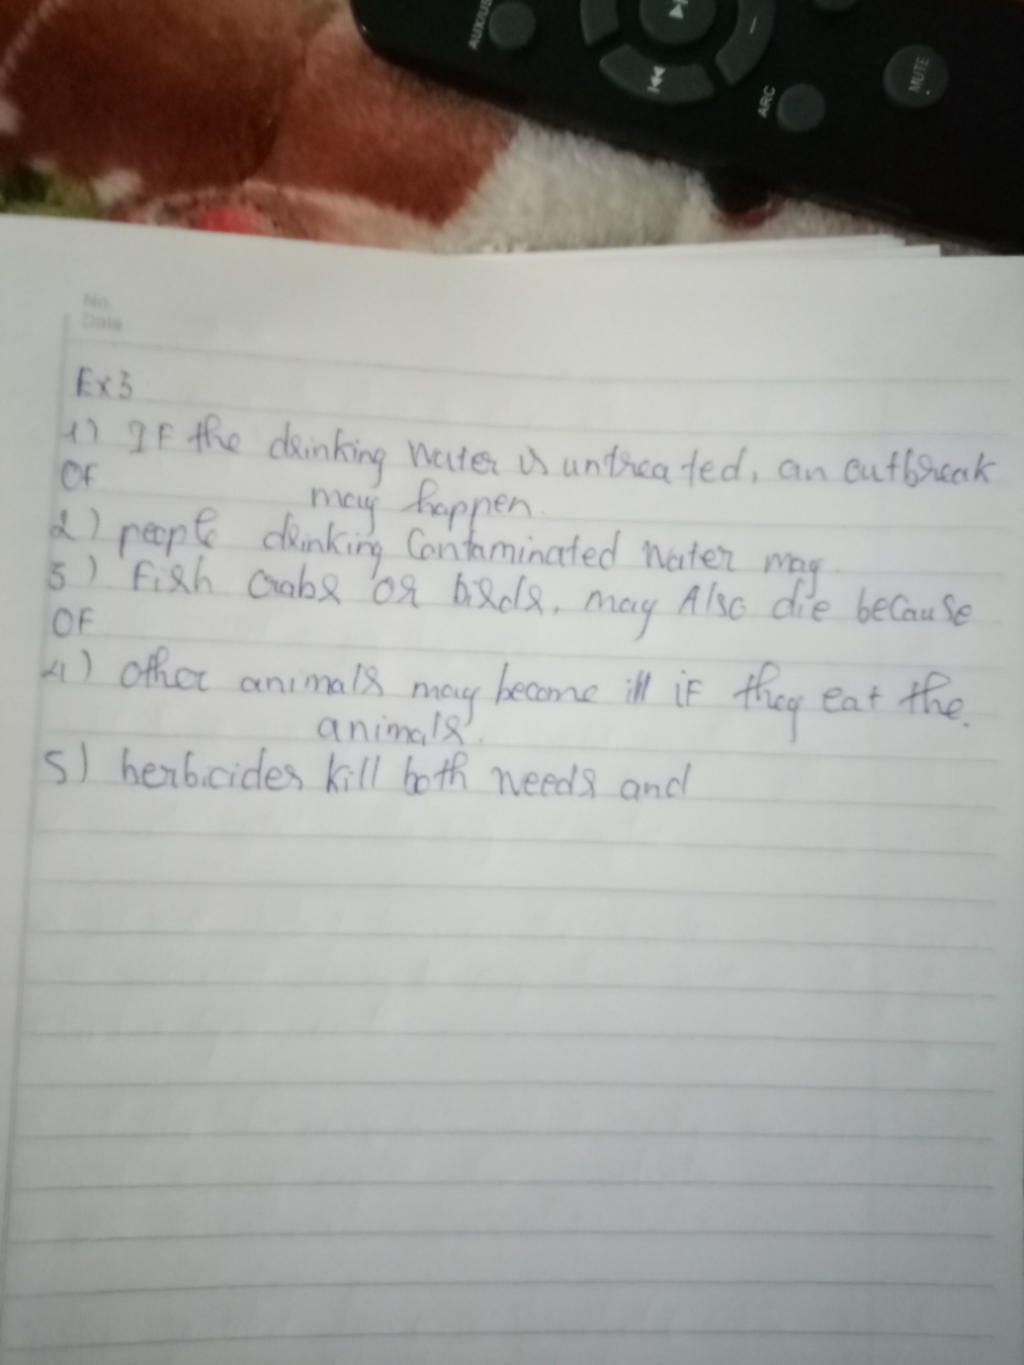 AUX/USB
ARC
MUTE
No.
Date
Ex3
1) IF the drinking water is untreated, an outbreak
OF may happen.
2) people drinking Contaminated water may
3) Fish crabs or birds, may Also die because
OF
4) other animals may become ill if they eat the.
animals.
5) herbicides kill both weeds and